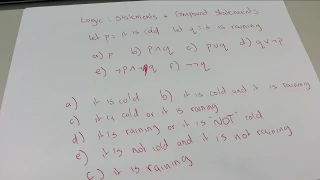 Logic: Statements + Compound Statements
let p: it is cold q: it is raining
a) p b) p∧q c) p∪q d) q∨¬p
e) ¬p∧¬q f) ¬¬q
a) it is cold b) it is cold and it is raining
c) it is cold or it is raining
d) it is raining or it is NOT cold
e) it is not cold and it is not raining
f) it is raining